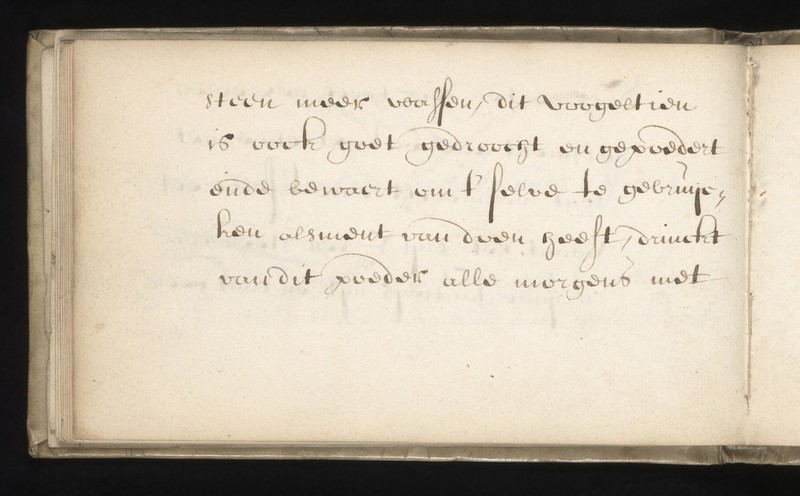 steen meer wassen, dit voogeltien
is oock goet gedroocht en gepoedert
ende bewaert om t' selve te gebruijc-
ken alsment van doen heeft, drinckt
van dit poeder alle morgens met